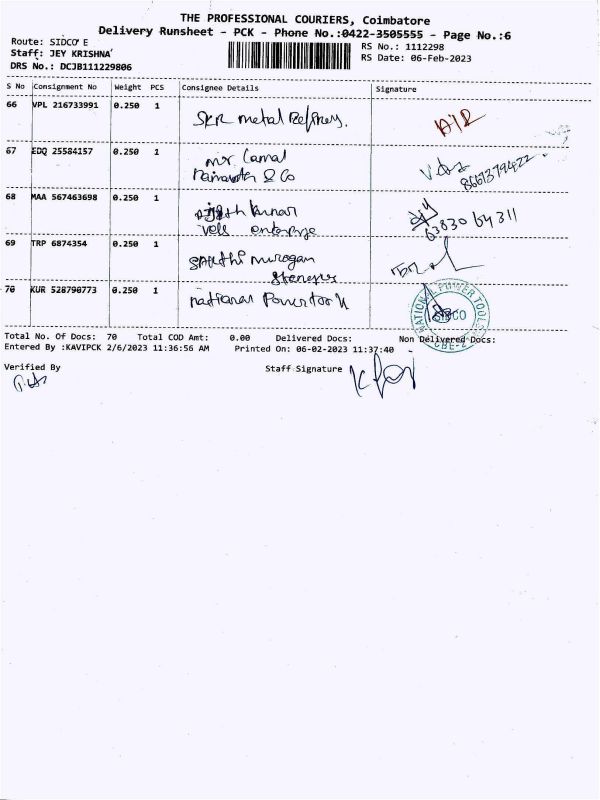 THE PROFESSIONAL COURIERS, Coimbatore
Delivery Runsheet - PCK - Phone No.:0422-3505555 - Page No.:6
Route: SIDCO E
Staff: JEY KRISHNA
DRS No.: DCJB111229806
RS No.: 1112298
RS Date: 06-Feb-2023
S No Consignment No Weight PCS Consignee Details Signature
66 VPL 216733991 0.250 1 SKR metal Refinery.
67 EDQ 25584157 0.250 1 mr. Camal
& Co 8667379422
68 MAA 567463698 0.250 1 kumar
vels enterprise 63830 64311
69 TRP 6874354 0.250 1 SAKthi murogan
70 KUR 528790773 0.250 1 national Powertools
NATIONAL POWER TOOLS
SIDCO
CBE-2
Total No. Of Docs: 70 Total COD Amt: 0.00 Delivered Docs: Non Delivered Docs:
Entered By :KAVIPCK 2/6/2023 11:36:56 AM Printed On: 06-02-2023 11:37:40
Verified By
Staff Signature